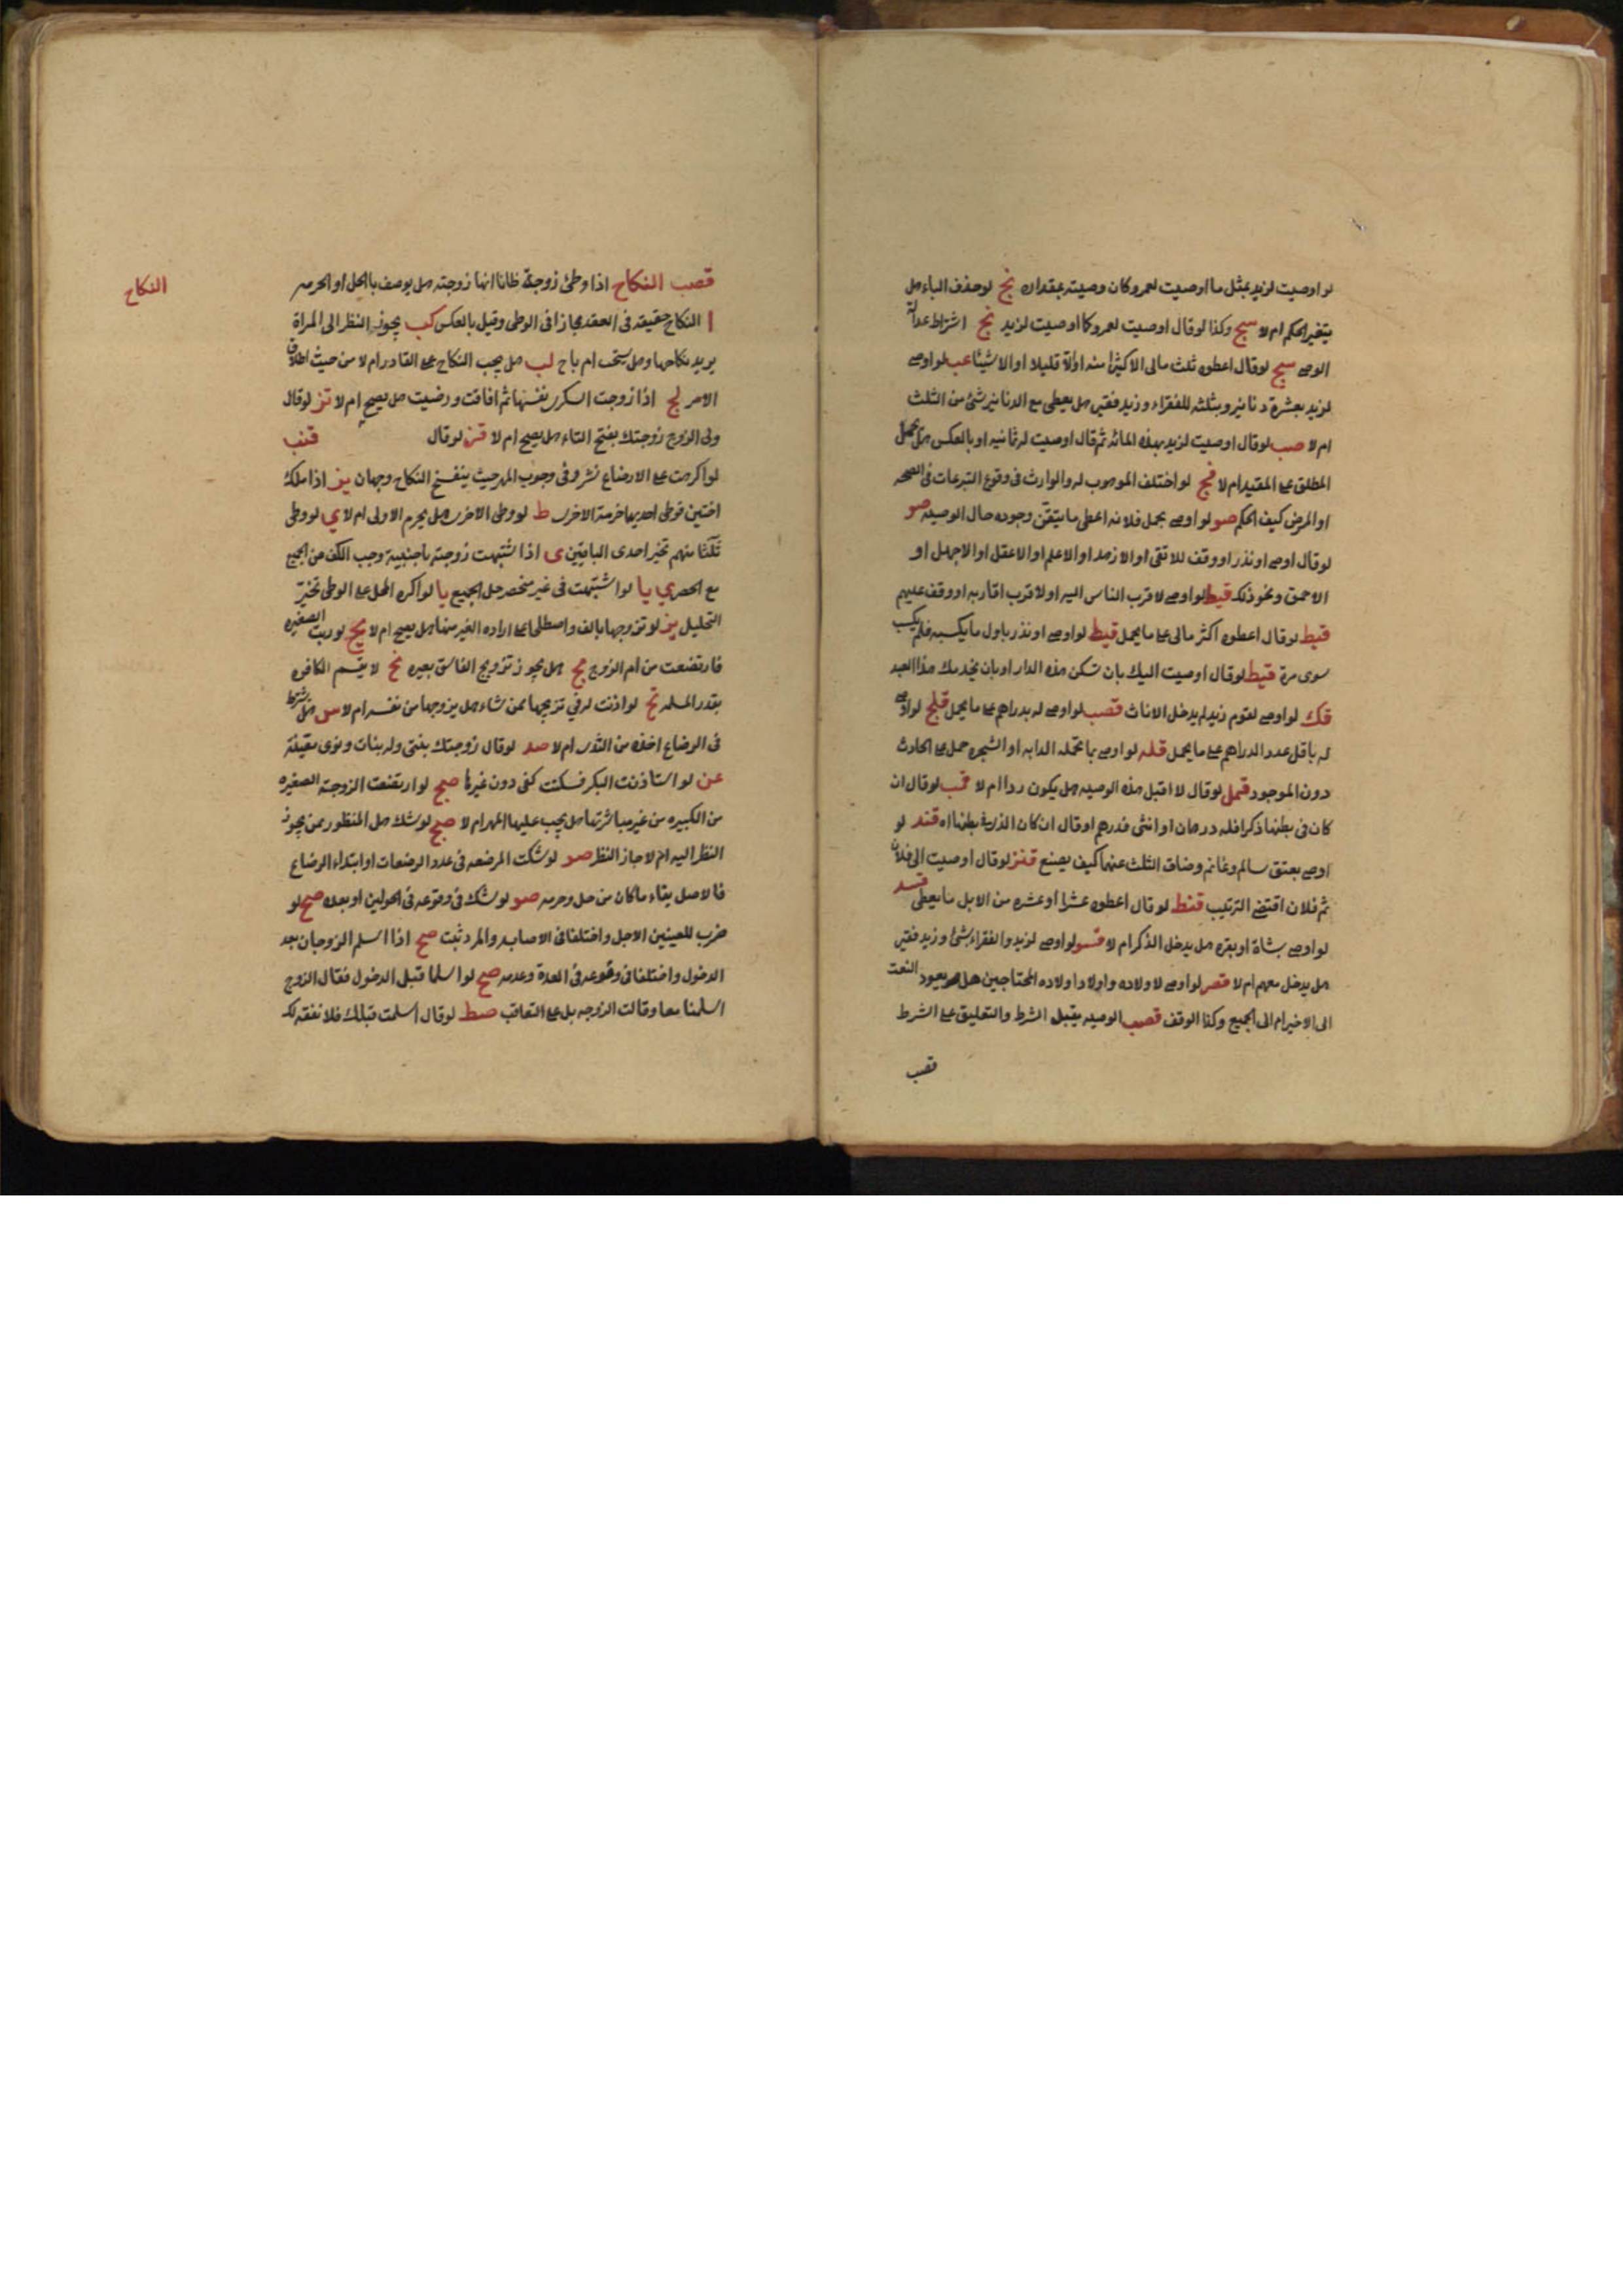 لو اوصيت لزيد بمثل ما اوصيت لعمرو كان وصيته بمقداره نج لو حذف الباء هل
يتغير الحكم ام لا سج وكذا لو قال اوصيت لعمرو كما اوصيت لزيد نج اشتراط عدالة
الوصي سج لو قال اعطوه ثلث مالي الا كثيرا منه اولا قليلا او الا شيئا عب لو اوصى
لزيد بعشرة دنانير وبثلثه للفقراء وزيد فقير هل يعطى مع الدنانير شئ من الثلث
ام لا صب لو قال اوصيت لزيد بهذه المائه ثم قال اوصيت له بمائه او بالعكس هل يحمل
المطلق على المقيد ام لا فج لو اختلف الموهوب له والوارث في وقوع التبرعات في الصحه
او المرض كيف الحكم صو لو اوصى بحمل فلانه اعطى ما يتيقن وجوده حال الوصيه صو
لو قال اوصى او نذر او وقف للاتقى او الازهد او الاعلم او الاعقل او الاجهل او
الاحمق ونحو ذلك قيط لو اوصى لاقرب الناس اليه او لاقرب اقاربه او وقف عليهم
قيط لو قال اعطوه اكثر مالي على ما يحمل قيط لو اوصى او نذر باول ما يكسبه فلم يكسب
سوى مرة قيط لو قال اوصيت اليك بان تسكن هذه الدار او بان يخدمك هذا العبد
قك لو اوصى لقوم زيد لم يدخل الاناث قصب لو اوصى له بدراهم على ما يحمل قلج لو اوصى
له باقل عدد الدراهم على ما يحمل قله لو اوصى بما تحمله الدابه او الشجره حمل على الحادث
دون الموجود قمل لو قال لا اقبل هذه الوصيه هل يكون ردا ام لا قب لو قال ان
كان في بطنها ذكرا فله درهمان او انثى فدرهم او قال ان كان الذي في بطنها اه قند لو
اوصى بعتق سالم وغانم وضاق الثلث عنهما كيف يصنع قنز لو قال اوصيت الى فلان
ثم فلان اقتضى الترتيب قنط لو قال اعطوه عشرا او عشره من الابل ما يعطى قسد
لو اوصى بشاة او بقره هل يدخل الذكر ام لا قسو لو اوصى لزيد والفقراء بشئ وزيد فقير
هل يدخل معهم ام لا قصر لو اوصى لاولاده واولاد اولاده المحتاجين هل يعود النعت
الى الاخير ام الى الجميع وكذا الوقف قصب الوصيه يقبل الشرط والتعليق على الشرط
قصب
النكاح
قصب النكاح اذا وطئ زوجة ظانا انها زوجته هل يوصف بالحل او الحرمه
ا النكاح حقيقه في العقد مجازا في الوطى وقيل بالعكس كب يجوز النظر الى المراة
يريد نكاحها وهل يستحب ام يباح لب هل يجب النكاح على القادر ام لا من حيث اطلاق
الامر لج اذا زوجت السكرى نفسها ثم افاقت ورضيت هل يصح ام لا تز لو قال
ولي الزوج زوجتك بفتح التاء هل يصح ام لا قز لو قال قنب
لو اكرهت على الارضاع نشر وفي وجوب المهر حيث ينفسخ النكاح وجهان يز اذا ملك
اختين فوطى احديهما حرمة الاخرى ط لو وطى الاخرى هل يحرم الاولى ام لا ي لو وطى
ثلثا منهم تخير احدى الباقيتين ى اذا اشتبهت زوجته باجنبية وجب الكف عن الجميع
مع الحصر ي يا لو اشتبهت في غير منحصر حل الجميع يا لو اكره المحل على الوطى تخير
التحليل يز لو تزوجها بالف واصطلحا على اراده الغير منها هل يصح ام لا يج لو دبت الصغيره
فارتضعت من ام الزوج مج هل يجوز تزويج الفاسق بغيره نج لا يقسم الكافره
بقدر المسلمه تح لو اذنت له في تزويجها بمن شاء هل يزوجها من نفسه ام لا س هل يشترط
في الرضاع اخذه من الثدى ام لا صد لو قال زوجتك بنتي وله بنات ونوى معينة
عن لو استاذنت البكر فسكتت كفى دون غيرها صج لو ارتضعت الزوجة الصغيره
من الكبيره من غير مباشرتها هل يجب عليها المهر ام لا صج لو شك هل المنظور ممن يجوز
النظر اليه ام لا جاز النظر صو لو شكت المرضعه في عدد الرضعات او ابتداء الرضاع
فالاصل بقاء ما كان من حل وحرمه صو لو شك في وقوعه في الحولين او بعده صح لو
ضرب للعنين الاجل واختلفا في الاصابه والمرد ثبت صح اذا اسلم الزوجان بعد
الدخول واختلفا في وقوعه في العدة وعدمه صح لو اسلما قبل الدخول فقال الزوج
اسلمنا معا وقالت الزوجه بل على التعاقب صط لو قال اسلمت قبلك فلا نفقه لك